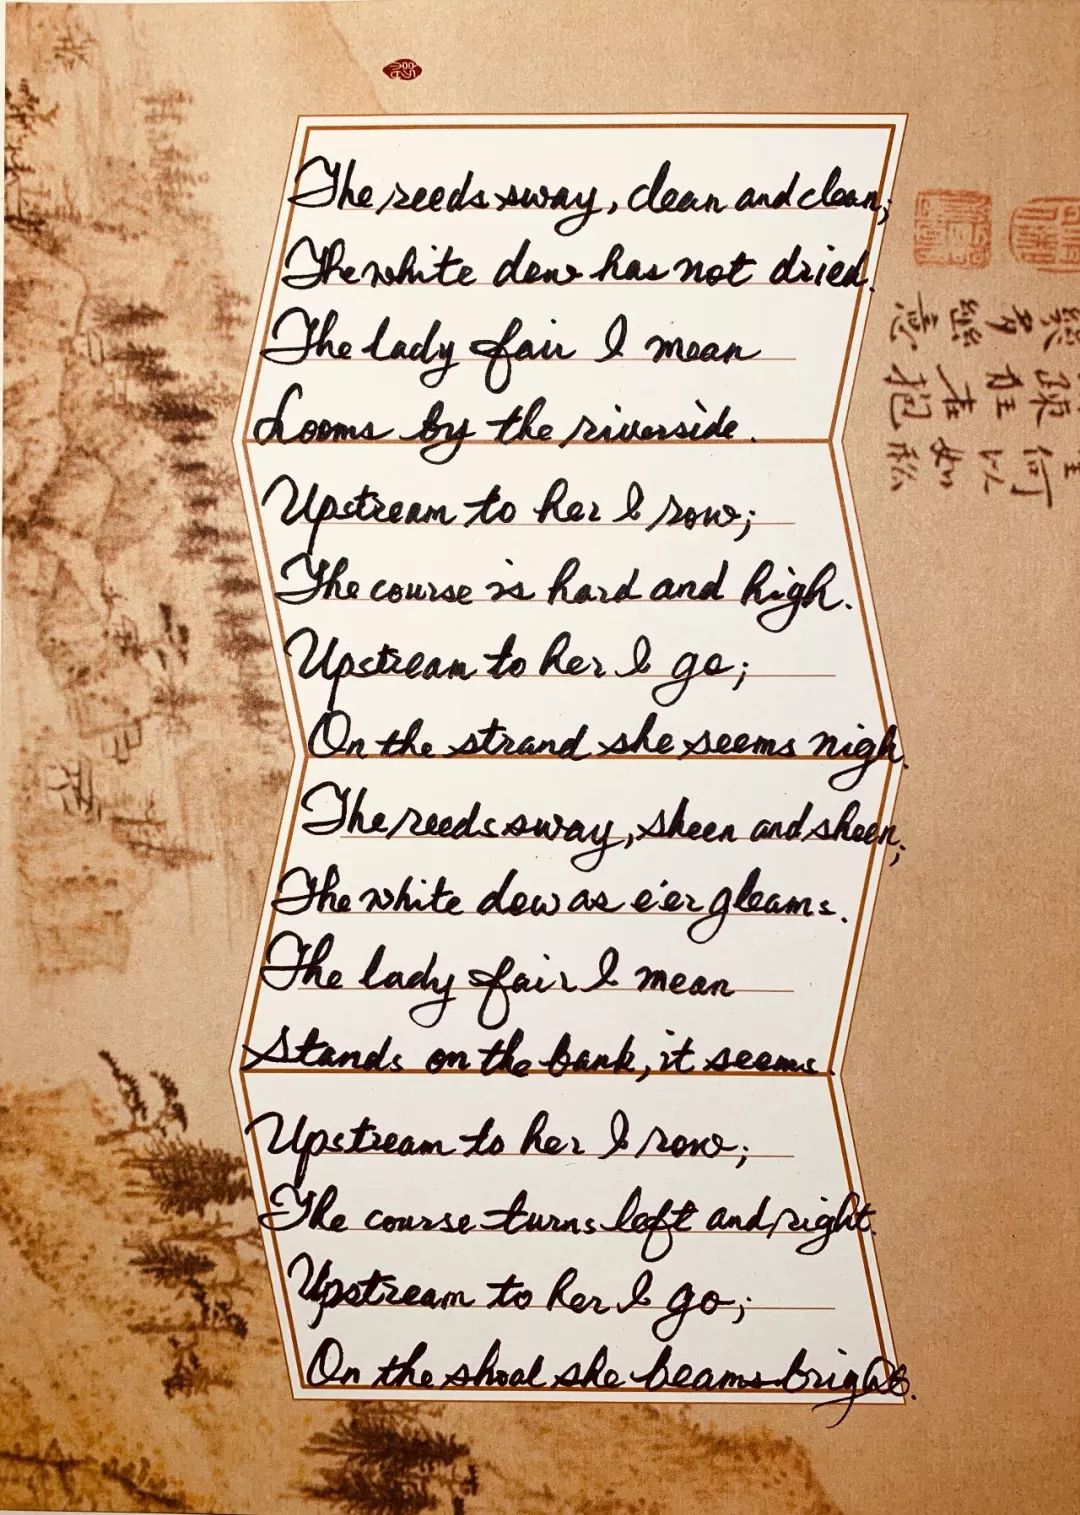 The reeds sway, clean and clean;
The white dew has not dried.
The lady fair I mean
Looms by the riverside.
Upstream to her I row;
The course is hard and high.
Upstream to her I go;
On the strand she seems nigh.
The reeds sway, sheen and sheen;
The white dew as e'er gleams.
The lady fair I mean
Stands on the bank, it seems.
Upstream to her I row;
The course turns left and right.
Upstream to her I go;
On the shoal she beams bright.
何
疎
多在以
樂在如
意抱私